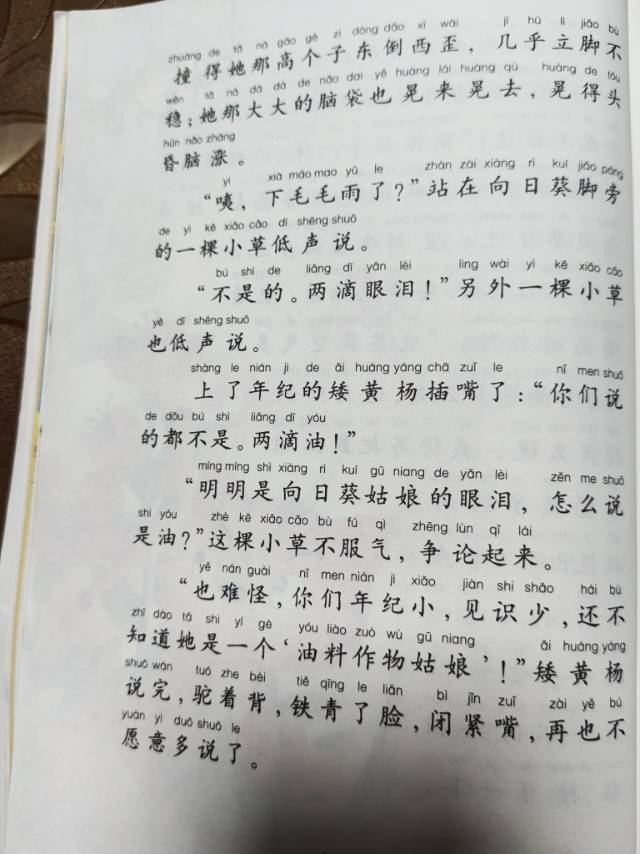 zhuàng de tā nà gāo gè zi dōng dǎo xī wāi jī hū lì jiǎo bù
撞得她那高个子东倒西歪，几乎立脚不
wěn tā nà dà dà de nǎo dai yě huàng lái huàng qù huàng de tóu
稳；她那大大的脑袋也晃来晃去，晃得头
hūn nǎo zhàng
昏脑涨。
yí xià máo mao yǔ le zhàn zài xiàng rì kuí jiǎo páng
“咦，下毛毛雨了？”站在向日葵脚旁
de yì kē xiǎo cǎo dī shēng shuō
的一棵小草低声说。
bú shì de liǎng dī yǎn lèi lìng wài yì kē xiǎo cǎo
“不是的。两滴眼泪！”另外一棵小草
yě dī shēng shuō
也低声说。
shàng le nián jì de ǎi huáng yáng chā zuǐ le nǐ men shuō
上了年纪的矮黄杨插嘴了：“你们说
de dōu bú shì liǎng dī yóu
的都不是。两滴油！”
míng míng shì xiàng rì kuí gū niang de yǎn lèi zěn me shuō
“明明是向日葵姑娘的眼泪，怎么说
shì yóu zhè kē xiǎo cǎo bù fú qì zhēng lùn qǐ lái
是油？”这棵小草不服气，争论起来。
yě nán guài nǐ men nián jì xiǎo jiàn shi shǎo hái bù
“也难怪，你们年纪小，见识少，还不
zhī dào tā shì yí gè yóu liào zuò wù gū niang ǎi huáng yáng
知道她是一个‘油料作物姑娘’！”矮黄杨
shuō wán tuó zhe bèi tiě qīng le liǎn bì jǐn zuǐ zài yě bú
说完，驼着背，铁青了脸，闭紧嘴，再也不
yuàn yì duō shuō le
愿意多说了。